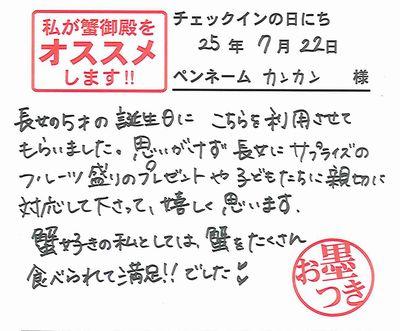 私が蟹御殿を
オススメ
します!!
チェックインの日にち
25年7月22日
ペンネーム カンカン 様
長女の5才の誕生日に こちらを利用させて
もらいました。思いがけず長女にサプライズの
フルーツ盛りのプレゼントや子どもたちに親切に
対応して下さって、嬉しく思います。
蟹好きの私としては、蟹をたくさん
食べられて満足!!でした♥
お墨
つき